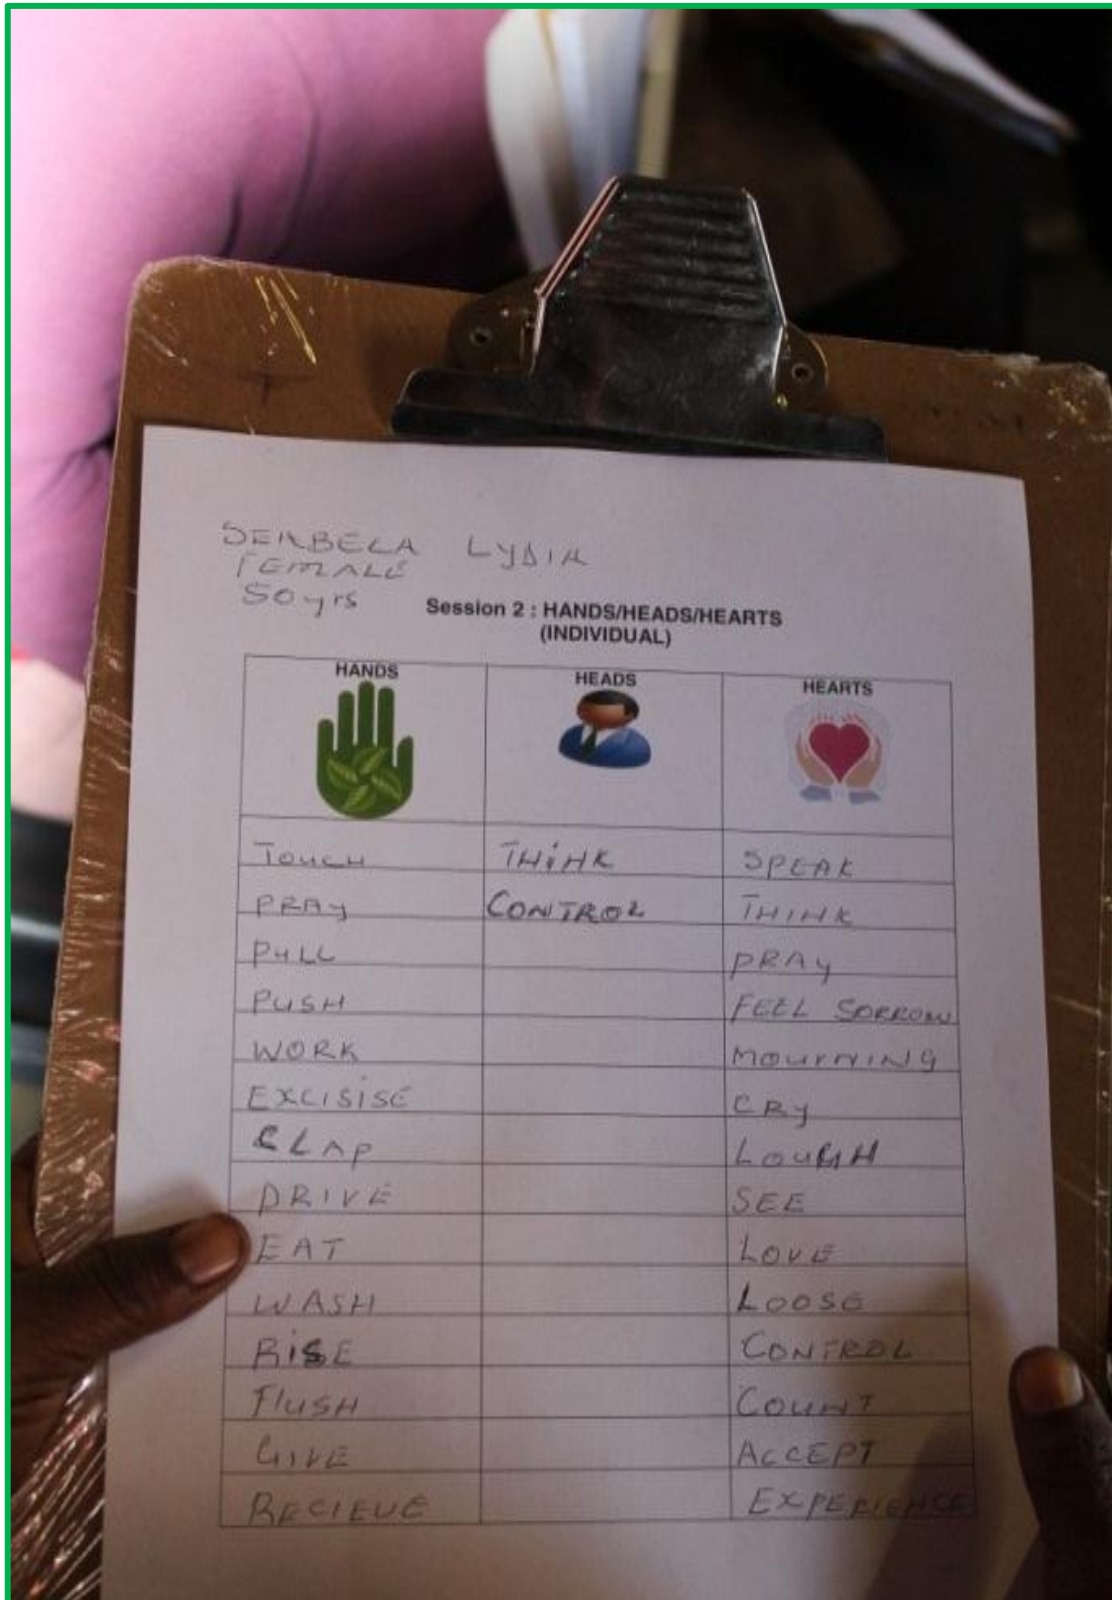 LYDIA
FEMALE
50yrs
Session 2 : HANDS/HEADS/HEARTS
(INDIVIDUAL)
HANDS HEADS HEARTS
TOUCH THINK SPEAK
PRAY CONTROL THINK
PULL PRAY
PUSH FEEL SORROW
WORK MOURNING
EXCISISE CRY
CLAP LOUGH
DRIVE SEE
EAT LOVE
WASH LOOSE
RISE CONTROL
FLUSH COUNT
GIVE ACCEPT
RECIEVE EXPERIENCE